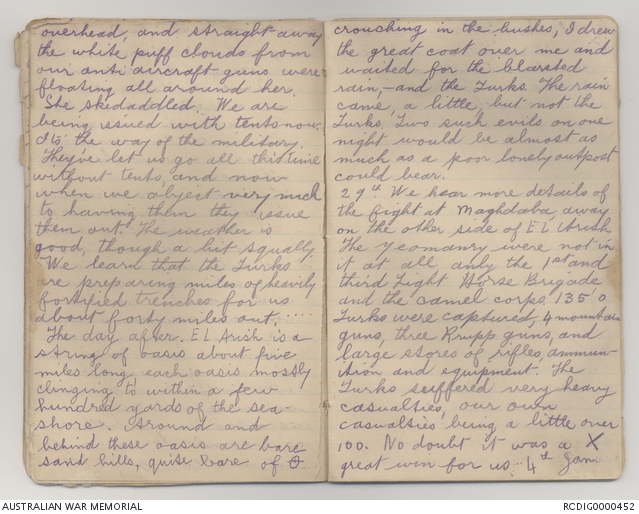 overhead, and straight away
the white puff clouds from
our anti aircraft guns were
floating all around her.
She skedaddled. We are
being issued with tents now.
Its the way of the military.
They've let us go all this time
without tents, and now
when we object very much
to having them they issue
them out. The weather is
good, though a bit squally.
We learn that the Turks
are preparing miles of heavily
fortified trenches for us
about forty miles out. ....
The day after. El Arish is a
string of oasis about five
miles long each oasis mostly
clinging to within a few
hundred yards of the sea-
shore. Around and
behind these oasis are bare
sand hills, quite bare of
crouching in the bushes, I drew
the great coat over me and
waited for the blarsted
rain,-and the Turks. The rain
came, a little, but not the
Turks. Two such evils on one
night would be almost as
much as a poor lonely outpost
could bear.
29th We hear more details of
the fight at Maghdaba, away
on the other side of El Arish
The Yeomanry were not in
it at all only the 1st and
third Light Horse Brigade
and the camel corps. 1350
Turks were captured, 4 mountain
guns, three Krupp guns, and
large stores of rifles, ammun-
ition and equipment. The
Turks suffered very heavy
casualties, our own
casualties being a little over
100. No doubt it was a X
great win for us. 4th Jan.
AUSTRALIAN WAR MEMORIAL
RCDIG0000452